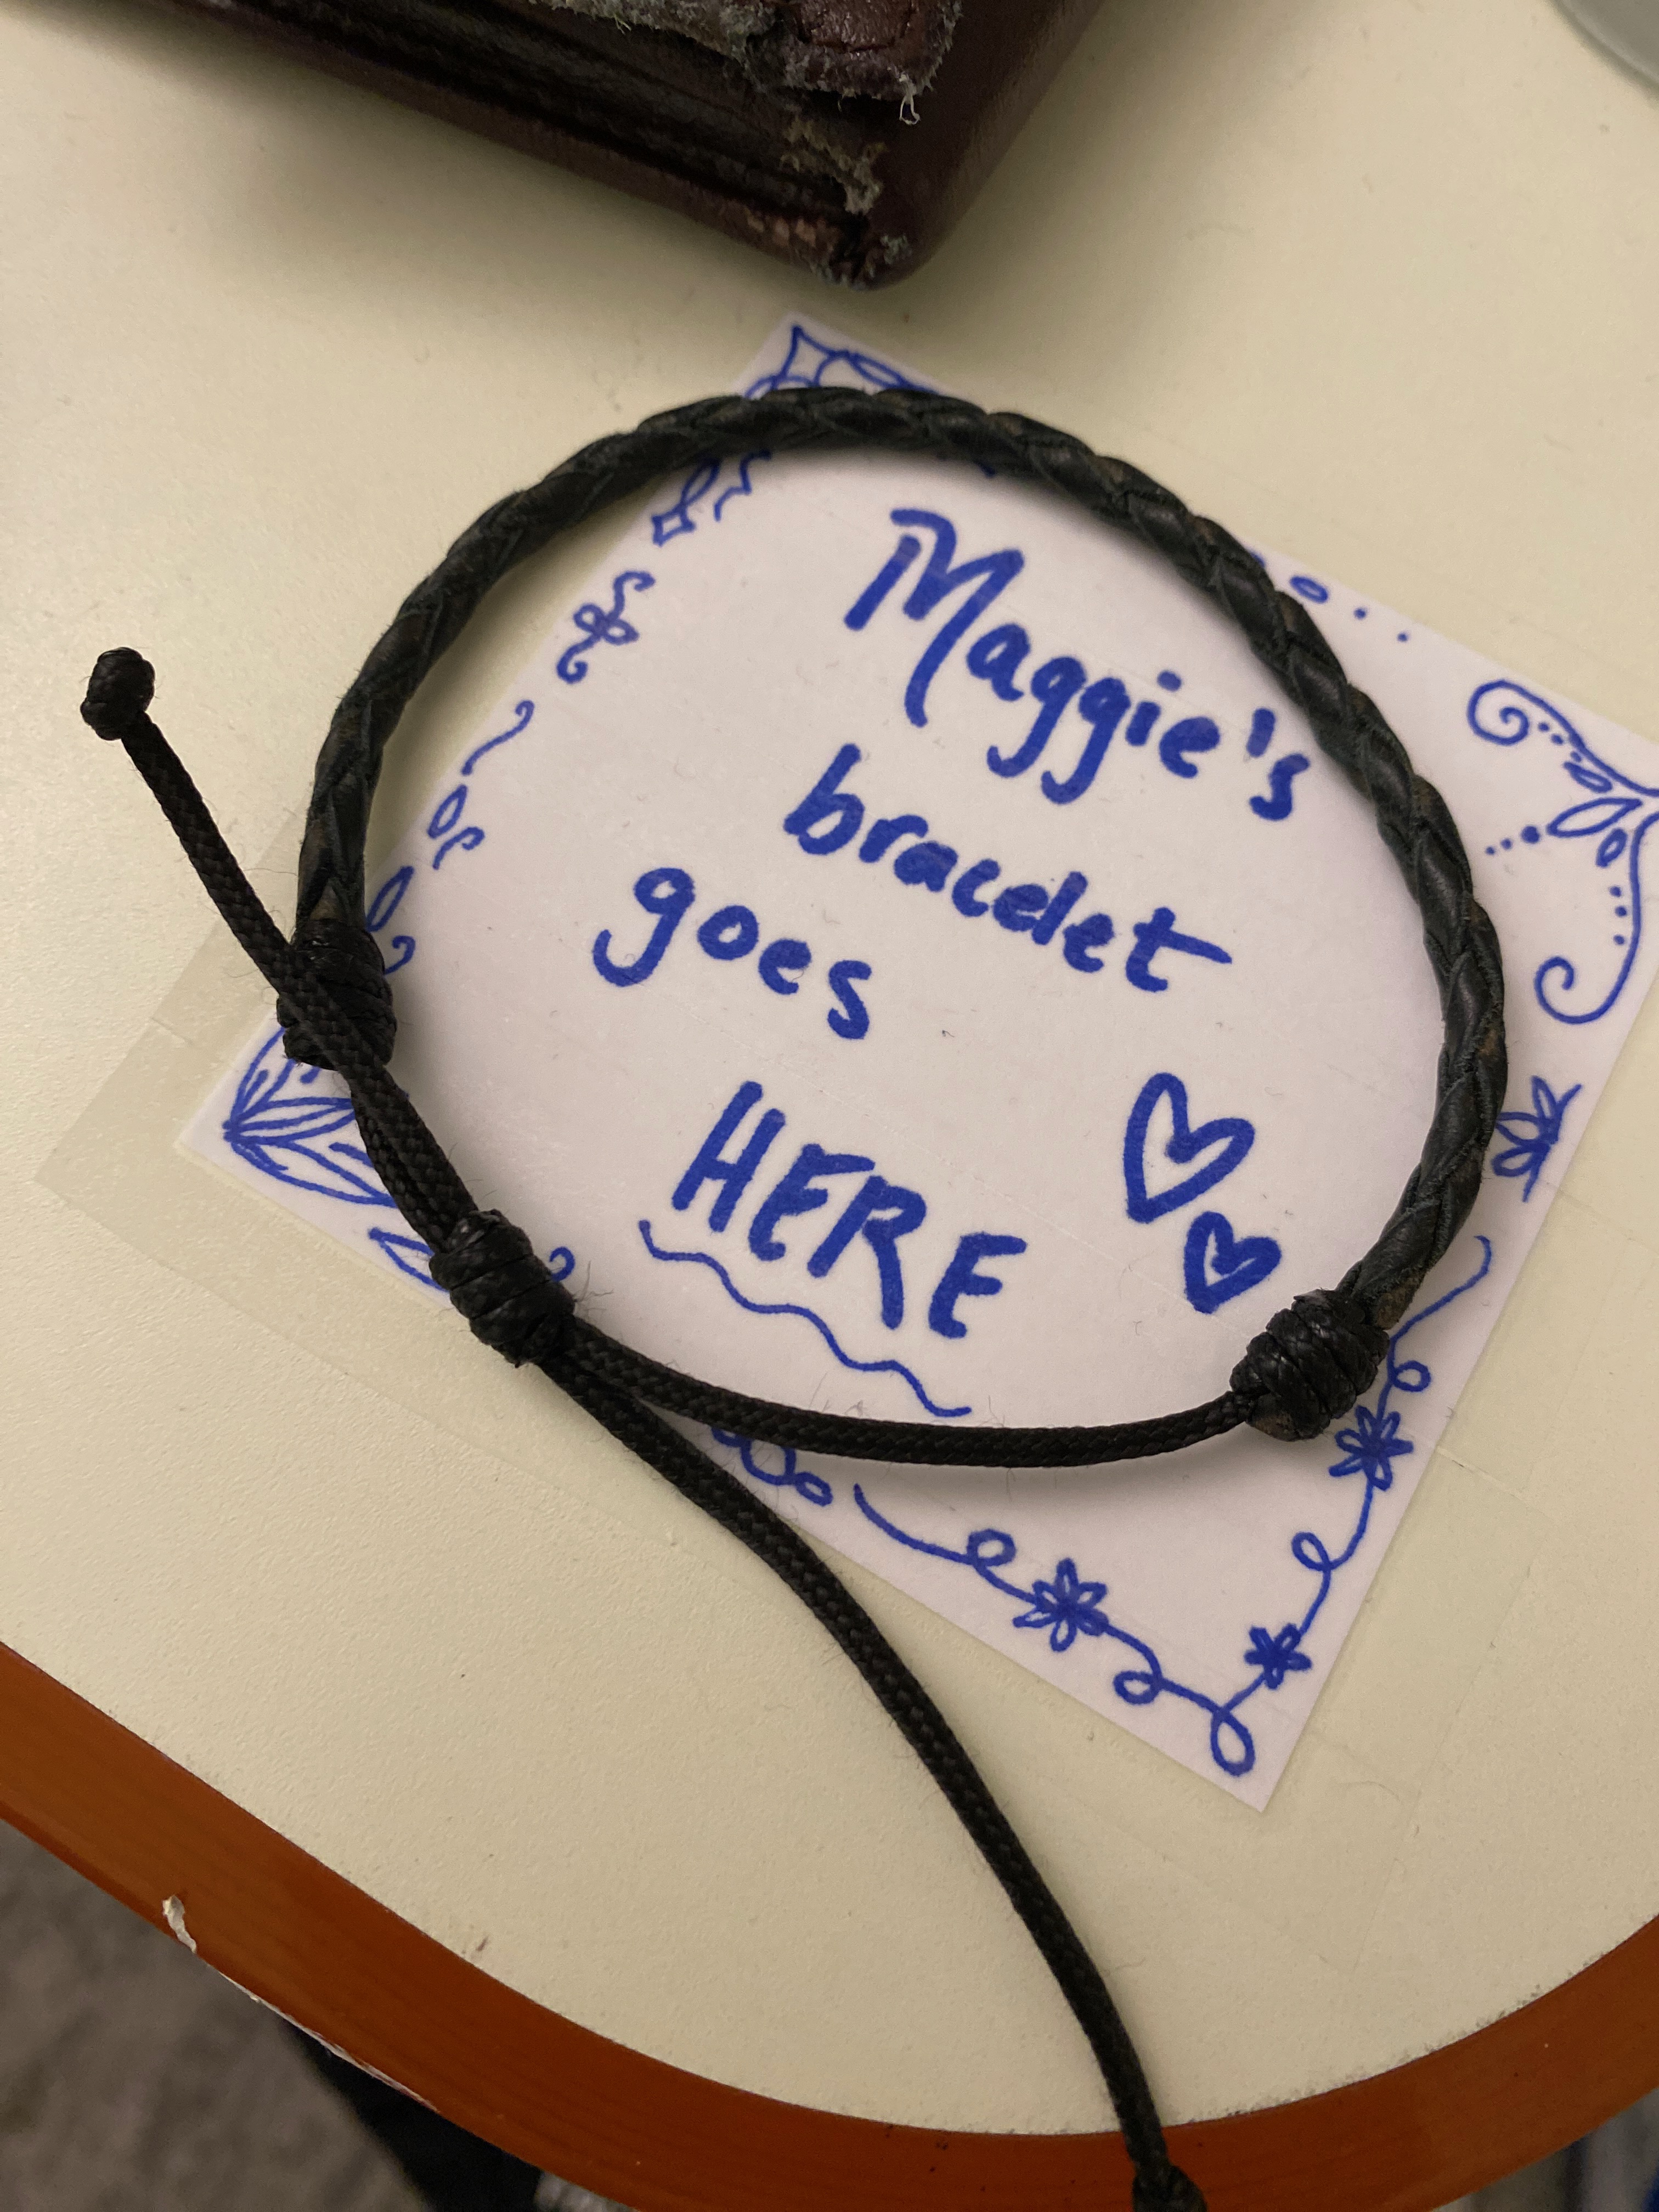 Maggie's
bracelet
goes
HERE